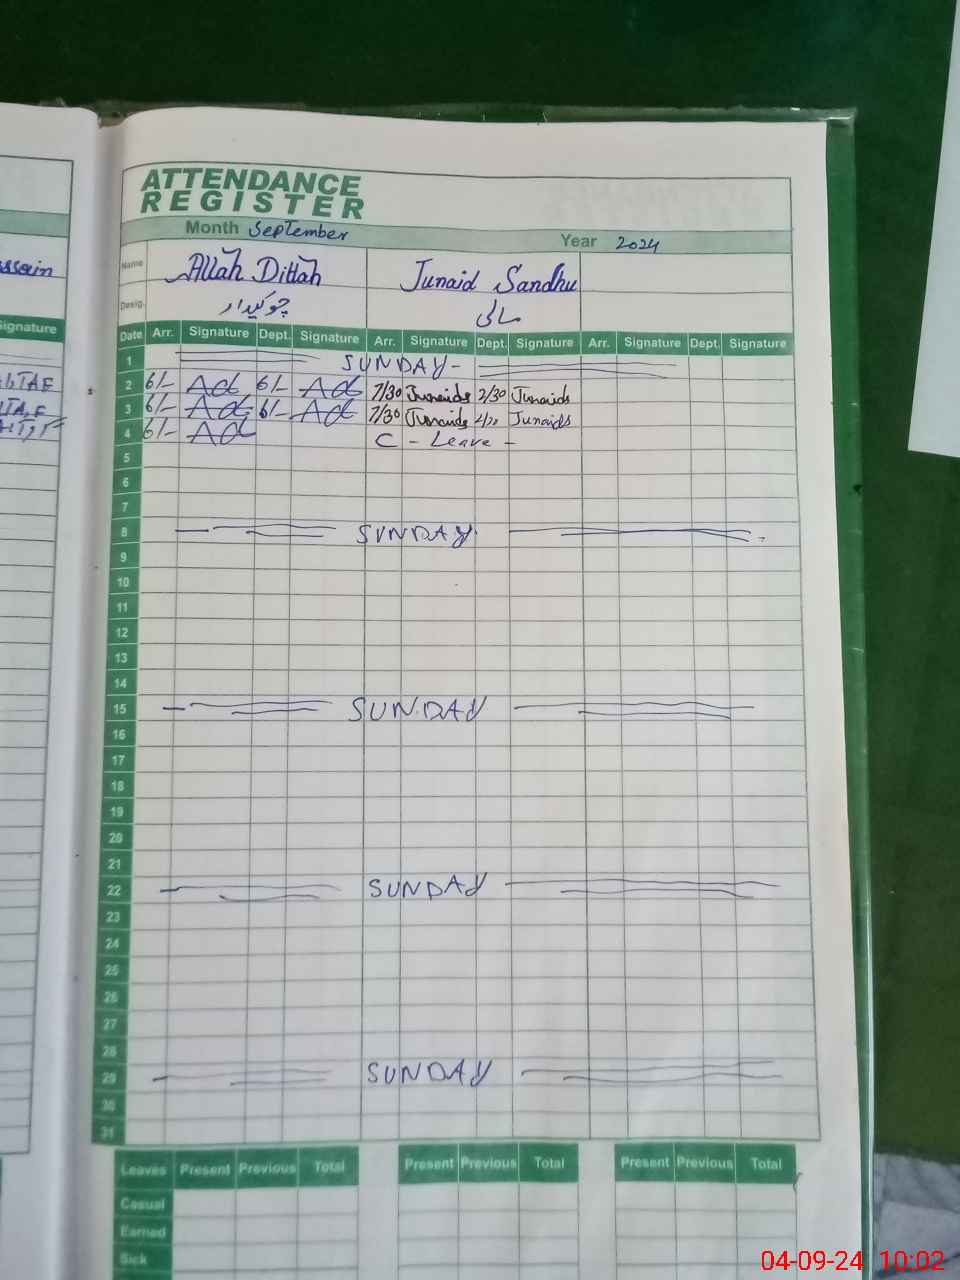 ATTENDANCE
REGISTER
Month September Year 2024
Name Allah Dittah Junaid Sandhu
Desig. چوکیدار مالی
Signature
Date Arr. Signature Dept. Signature Arr. Signature Dept. Signature Arr. Signature Dept. Signature
1 SUNDAY
2 6/- Ad 6/- Ad 7/30 Junaids 2/30 Junaids
3 6/- Ad 6/- Ad 7/30 Junaids Junaids
4 6/- Ad C - Leave -
5
6
7
8 SUNDAY
9
10
11
12
13
14
15 SUNDAY
16
17
18
19
20
21
22 SUNDAY
23
24
25
26
27
28
29 SUNDAY
30
31
Leaves Present Previous Total Present Previous Total Present Previous Total
Casual
Earned
Sick
04-09-24 10:02